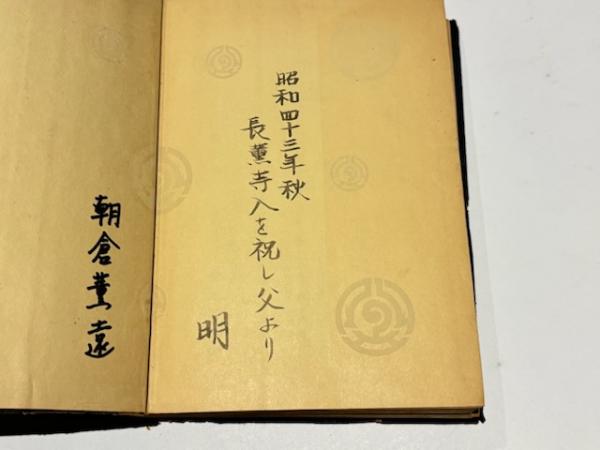 昭和四十三年秋
長薫寺入を祝し父より
明
朝倉薫遠